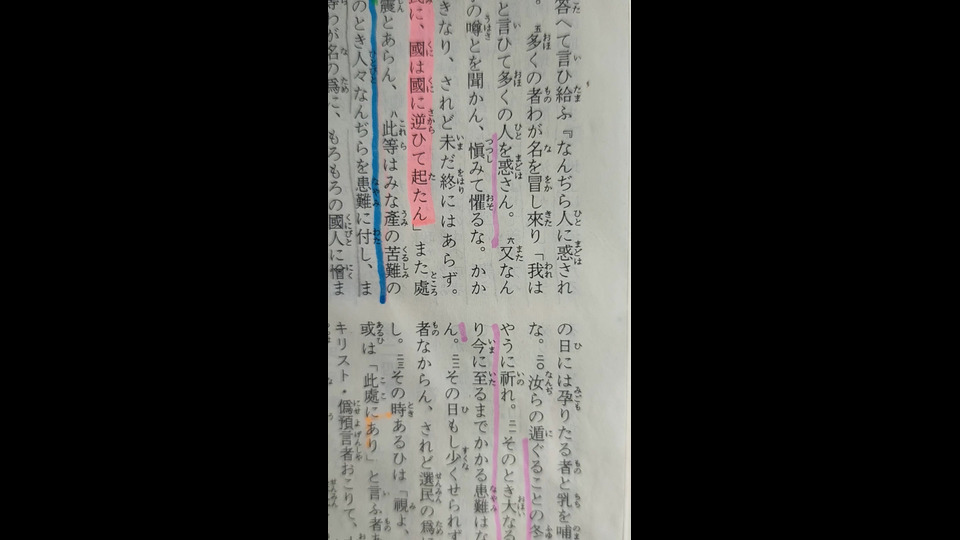 答へて言ひ給ふ『なんぢら人に惑され
。五多くの者わが名を冒し來り「我は
と言ひて多くの人を惑さん。六又なん
の噂とを聞かん、愼みて懼るな。かか
きなり、されど未だ終にはあらず。
民に、國は國に逆ひて起たん」また處
震とあらん、八此等はみな產の苦難の
のとき人々なんぢらを患難に付し、ま
が名の爲に、もろもろの國人に憎ま
の日には孕りたる者と乳を哺
な。二〇汝らの遁ぐることの冬
やうに祈れ。二一そのとき大なる
り今に至るまでかかる患難はな
ん。二二その日もし少くせられず
者なからん、されど選民の爲に
し。二三その時あるひは「視よ、
或は「此處にあり」と言ふ者あ
キリスト・僞預言者おこりて、